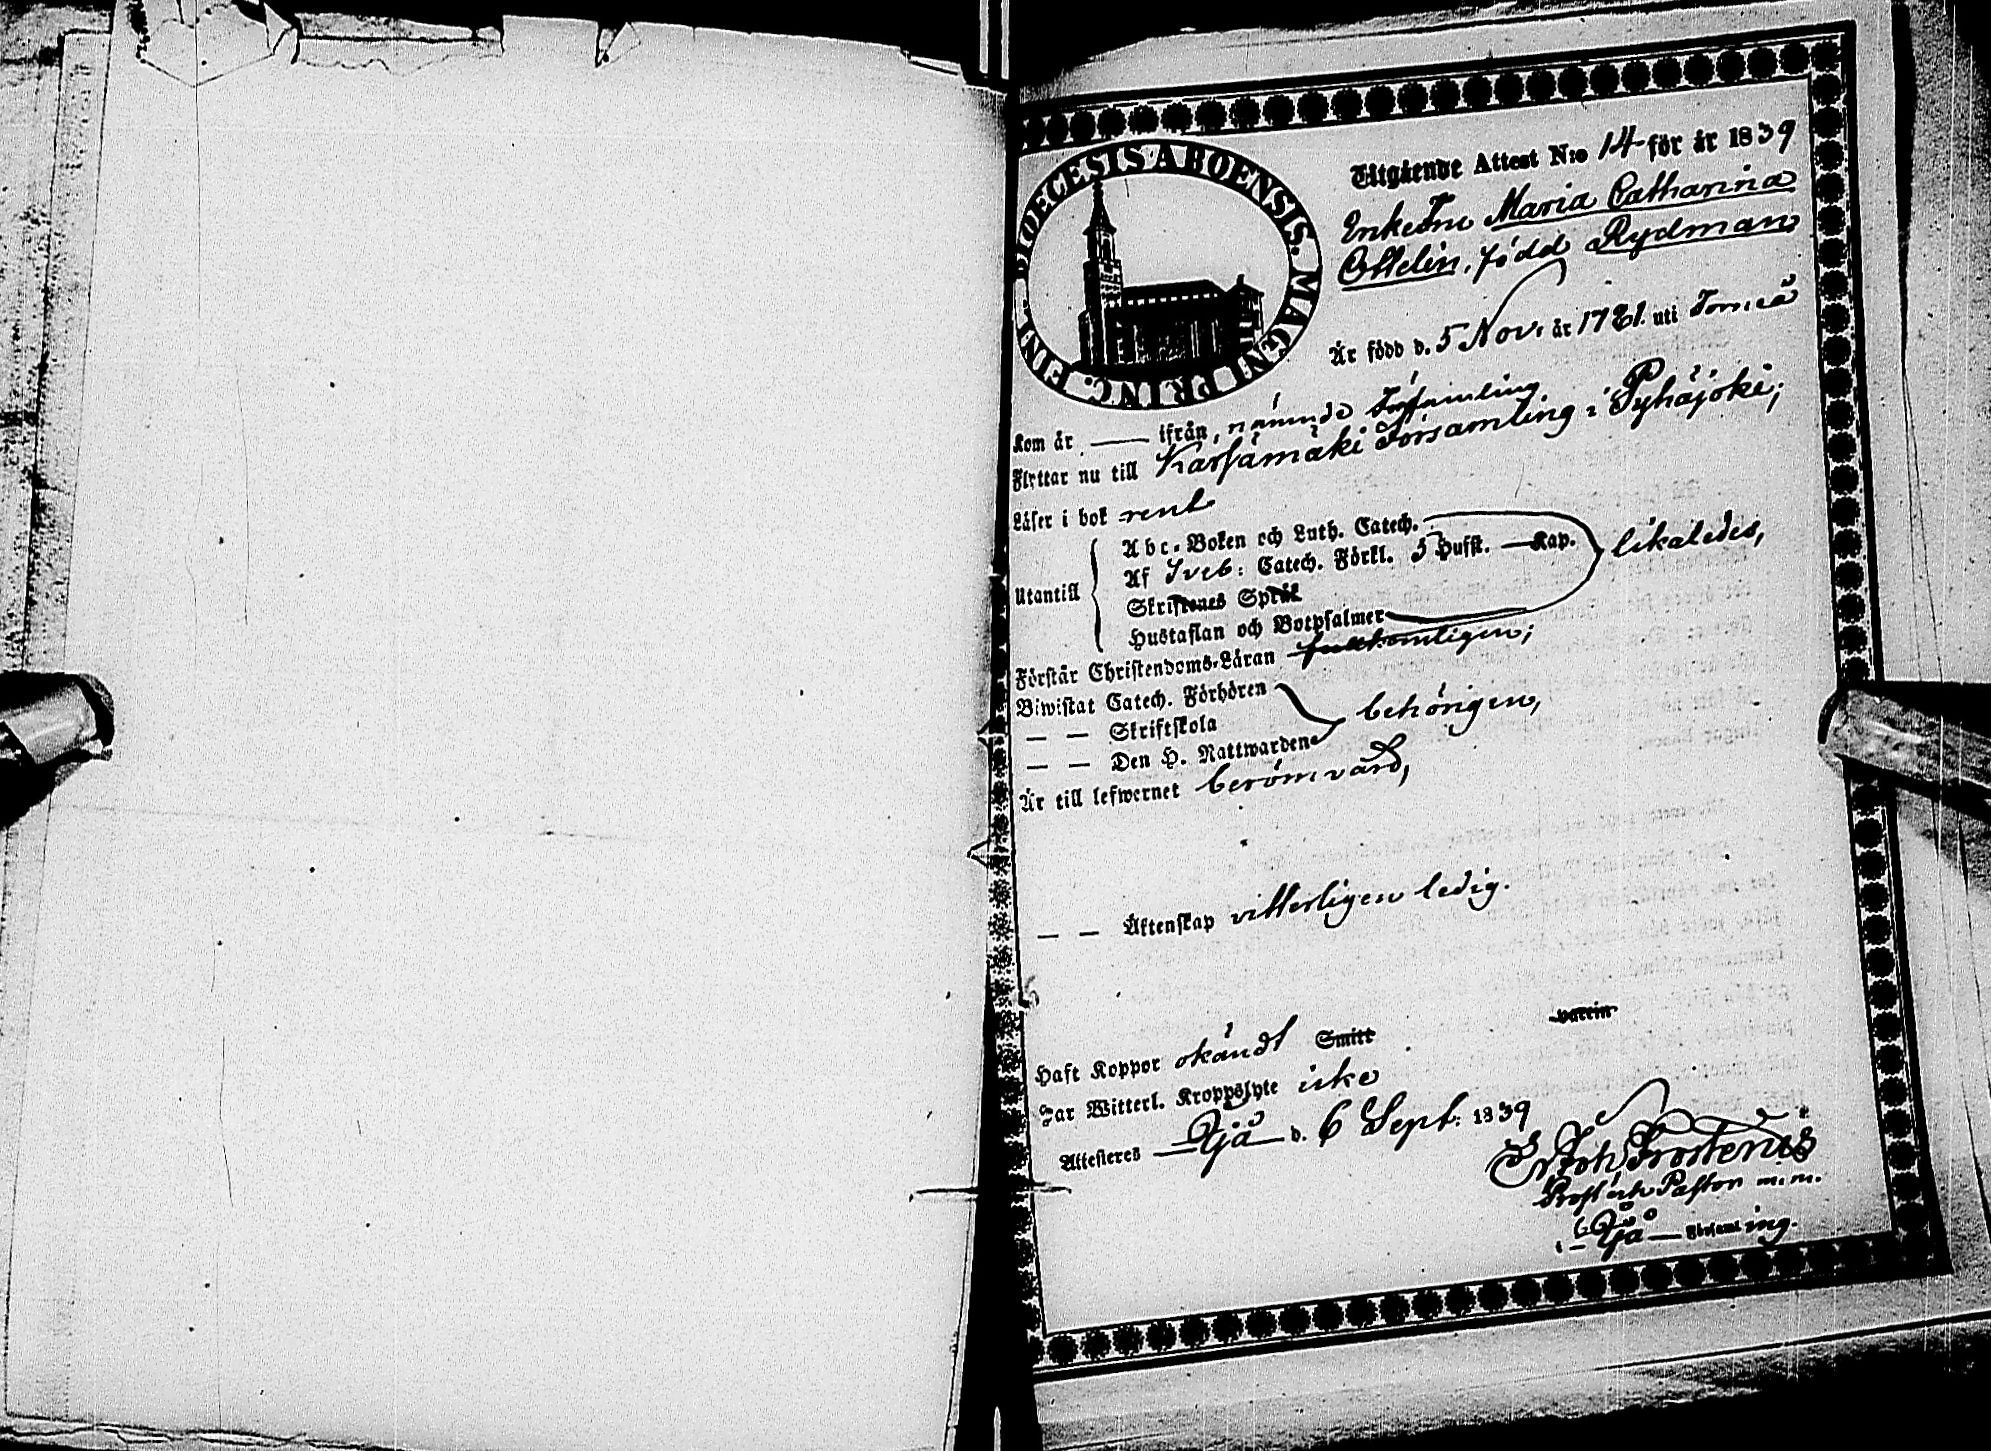 DIOECESIS ABOENSIS. MAGNI PRINC. FINL.
Utgående Attest N:o 14 för år 1839
Enkefru Maria Catharina
Ottelin, född Rydman
Är född d. 5 Nov. år 1781. uti
Kom år — ifrån, nämnde Församling
Flyttar nu till Kärsämäki Församling i Pyhäjoki;
Läser i bok rent
Utantill
Abc-Boken och Luth. Catech.
Af Sveb: Catech. Förkl. 5 Hufst. — Kap.
likaledes,
Skriftenes Språk
Hustaflan och Botpsalmer
Förstår Christendoms-Läran fullkomligen;
Biwistat Catech. Förhören
— — Skriftskola
behörigen,
— — Den H. Nattwarden
Är till lefwernet berömvärd,
— — Äktenskap vitterligen ledig.
Haft Koppor okändt Smitt warin
Har Witterl. Kroppslyte icke
Attesteres — d. 6 Sept. 1839
Joh. Frosterus
Prost och Pastor m.m.
i — Församling.